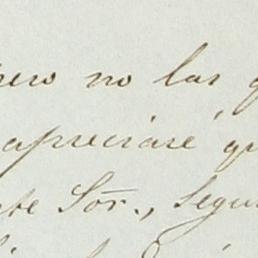 pero no las q
apreciaré, qu
te Sor., Segu